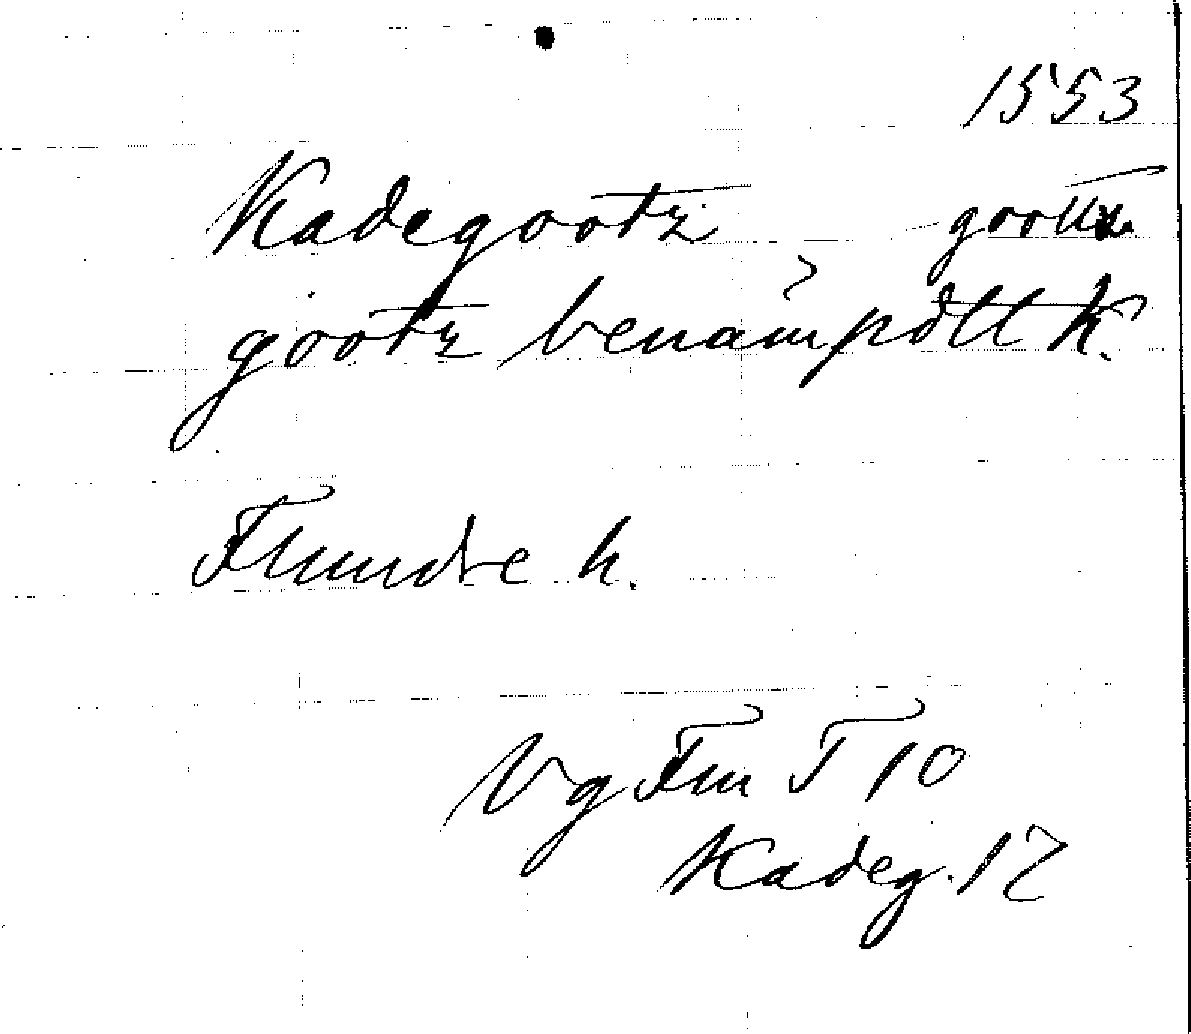 1553
Kadegootz goottz
gootz benämpdtt K.
Flundre h.
Vg Flu T 10
Kadeg. 12